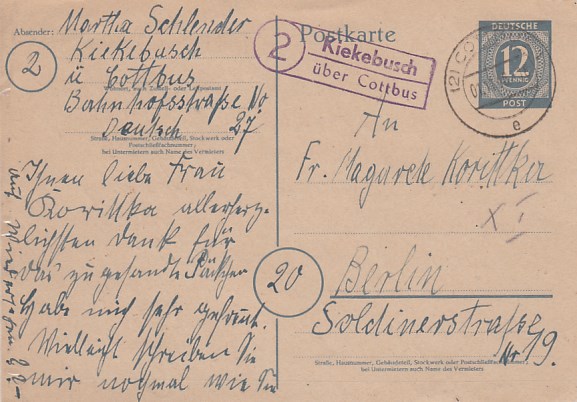 Absender: Martha Schlender
Kiekebusch
ü Cottbus
Wohnort, auch Zustell- oder Leitpostamt
Bahnhofsstraße No
Deutsch 27
Straße, Hausnummer, Gebäudeteil, Stockwerk oder
Postschließfachnummer,
bei Untermietern auch Name des Vermieters
2
Ihnen liebe Frau
Korittka allerherz-
lichsten Dank für
das zu gesandte Päckchen
Habe mich sehr gefreut.
Vielleicht schreiben Sie
mir nochmal wie Sie
auf
Postkarte
2
Kiekebusch
über Cottbus
DEUTSCHE
12
PFENNIG
POST
e
An
Fr. Magarete Korittka
X I
20
Berlin
Soldinerstrasse
Nr 19.
Straße, Hausnummer, Gebäudeteil, Stockwerk oder Postschließfachnummer,
bei Untermietern auch Name des Vermieters